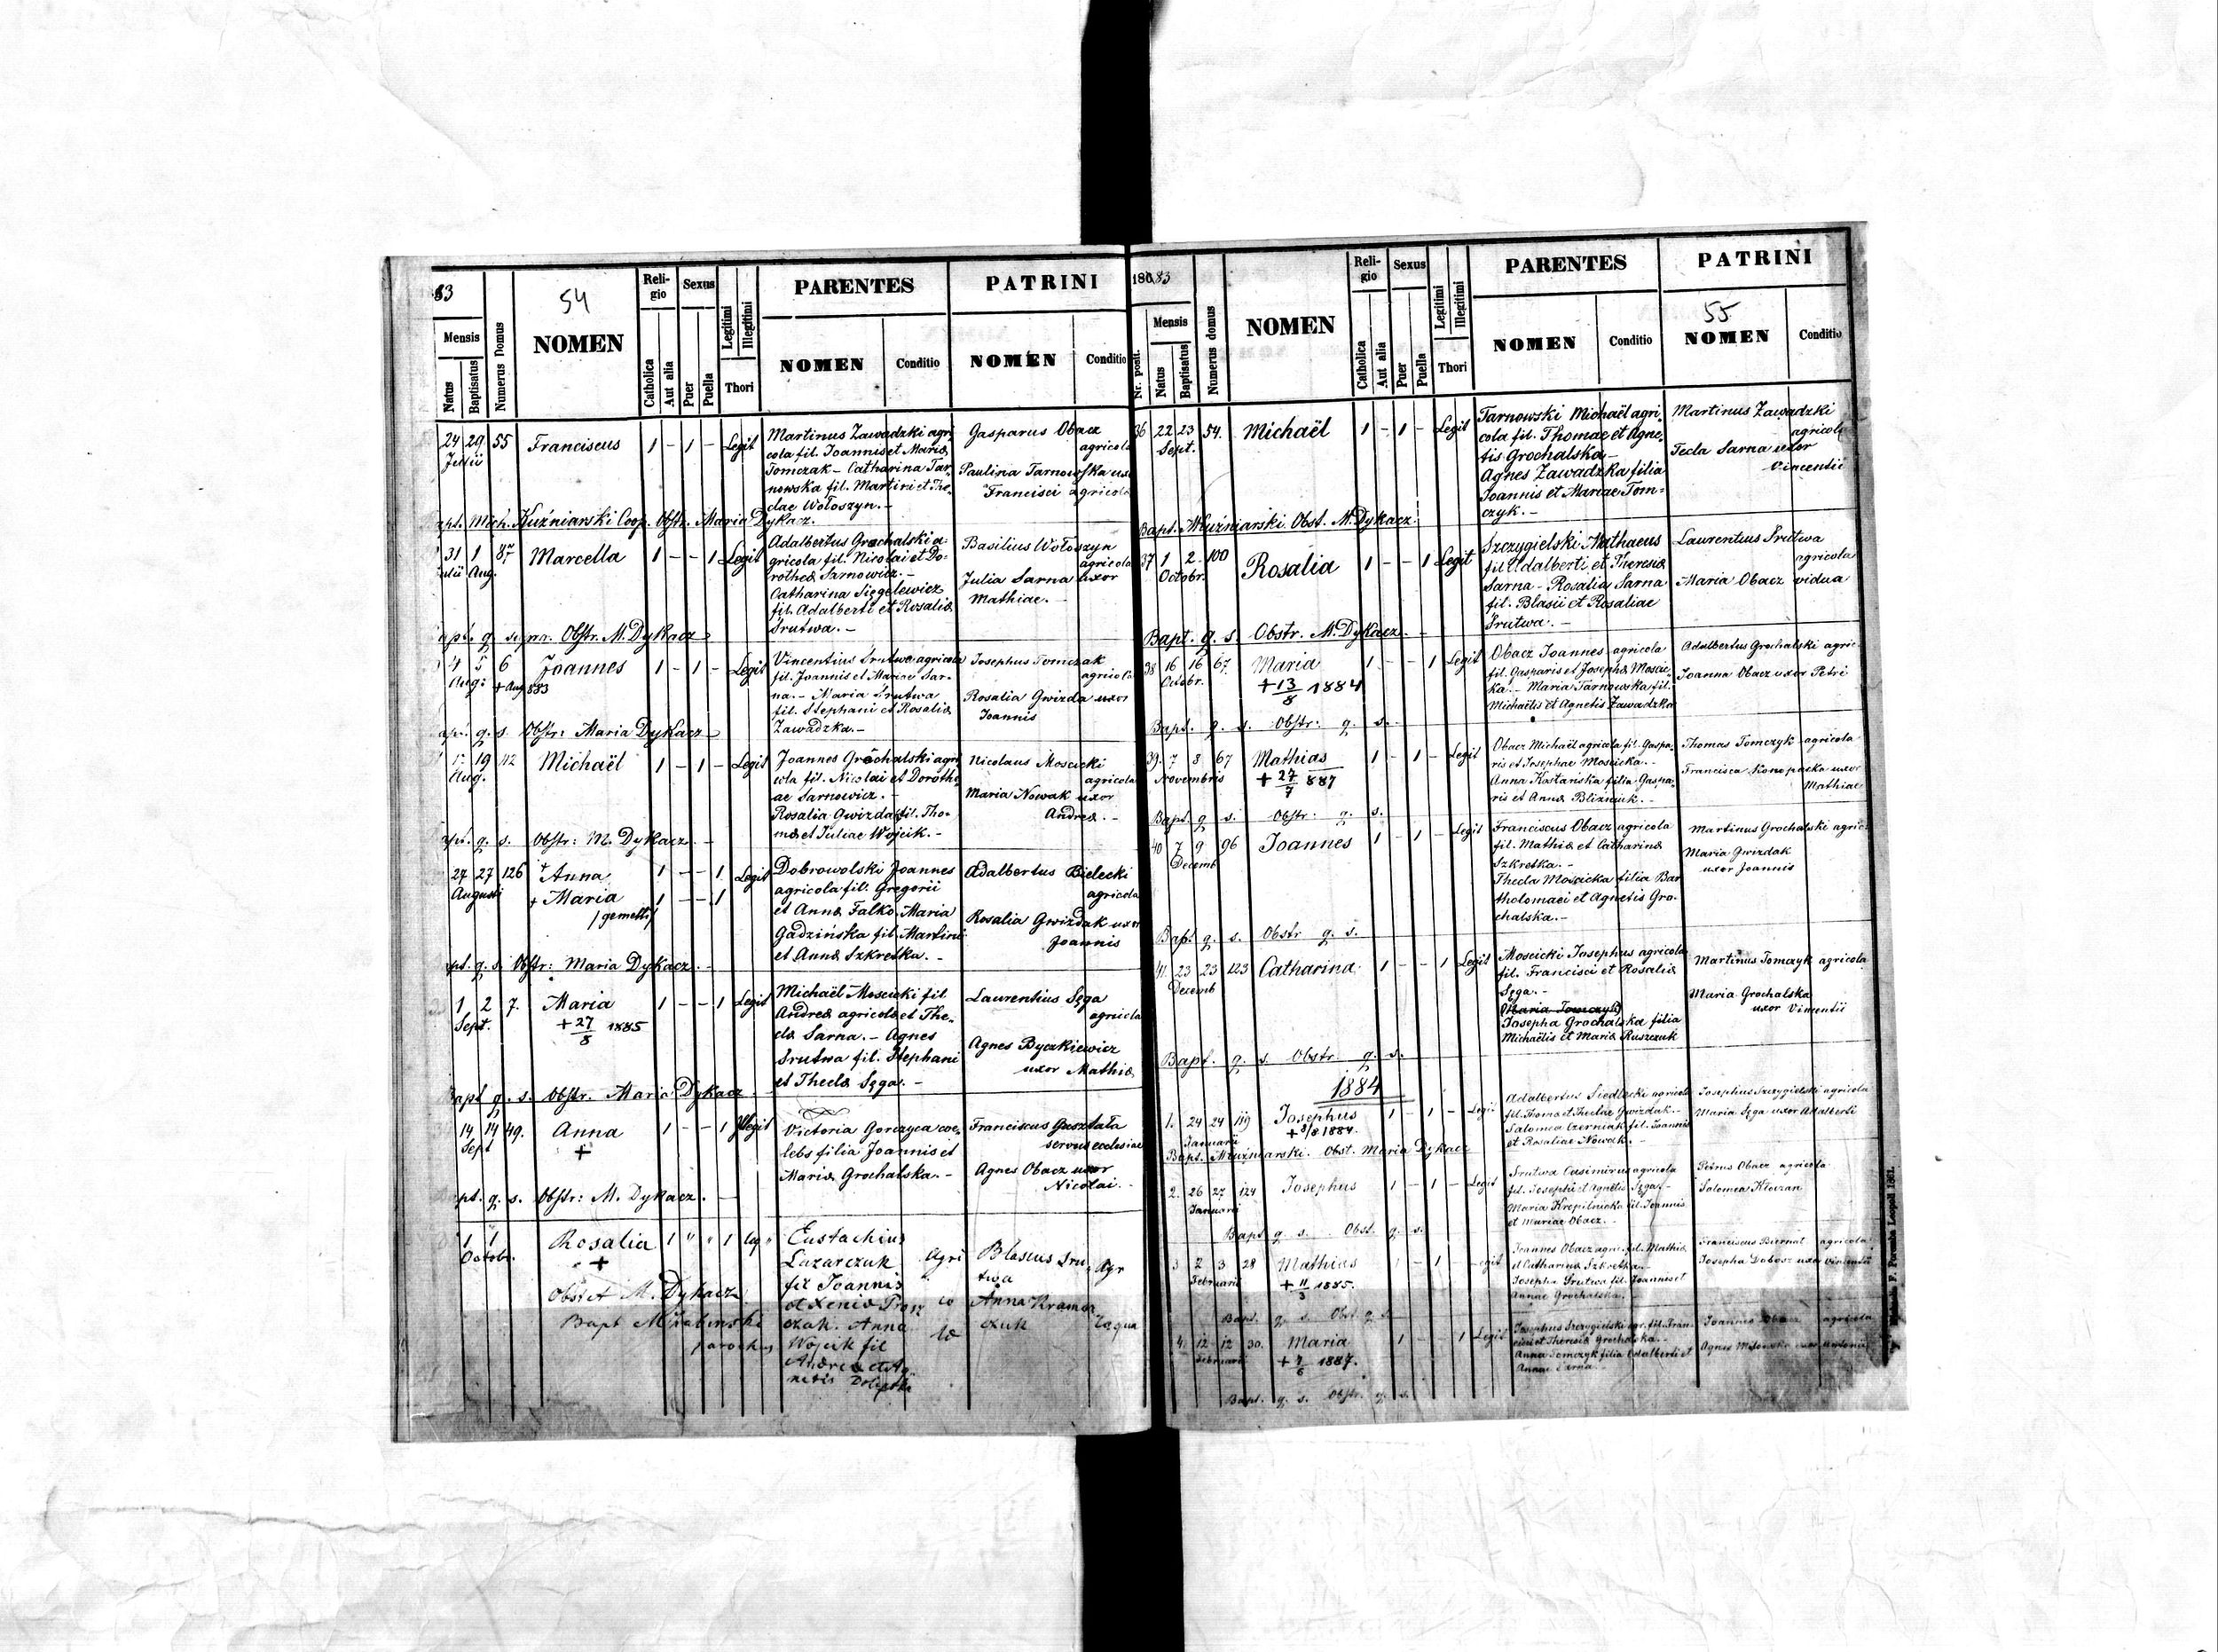 83
54
Mensis
Natus
Baptisatus
Numerus Domus
NOMEN
Reli-
gio
Catholica
Aut alia
Sexus
Puer
Puella
Legitimi
Illegitimi
Thori
PARENTES
NOMEN
Conditio
PATRINI
NOMEN
Conditio
24 29 55 Franciscus 1 - 1 - Legit
Julii
Martinus Zawadzki agri
cola fil. Joannis et Mariæ
Tomczak - Catharina Tar
nowska fil. Martini et The
clae Wołoszyn. -
Gasparus Obacz
agricola
Paulina Tarnowska uxor
Francisci agricola
Mich. Kuźniarski Coop. Obstr. Maria Dykacz.
31 1 87 Marcella 1 - - 1 Legit
Julii Aug.
Adalbertus Grochalski a-
gricola fil. Nicolai et Do-
rotheæ Sarnowicz. -
Catharina Sięgelewicz
fil. Adalberti et Rosaliæ
Srutwa. -
Basilius Wołoszyn
agricola
Julia Sarna uxor
Mathiae. -
q. supra. Obstr. M. Dykacz
4 5 6 Joannes 1 - 1 - Legit
Aug: + Aug 883
Vincentius Srutwa agricola
fil. Joannis et Mariae Sar-
na. - Maria Srutwa
fil. Stephani et Rosaliæ
Zawadzka. -
Josephus Tomczak
agricola
Rosalia Gwizda uxor
Joannis
q. s. Obstr: Maria Dykacz
19 112 Michaël 1 - 1 - Legit
Aug.
Joannes Grochalski agri
cola fil. Nicolai et Doroth
ae Sarnowicz. -
Rosalia Gwizdak fil. Tho-
mæ et Juliae Wojcik. -
Nicolaus Moscicki
agricola
Maria Nowak uxor
Andreæ. -
q. s. Obstr: M. Dykacz. -
27 27 126 + Anna 1 - - 1 Legit
Augusti + Maria 1 - - 1
/gemelli/
Dobrowolski Joannes
agricola fil. Gregorii
et Annæ Falko Maria
Gadzińska fil. Martini
et Annæ Szkretka. -
Adalbertus Bielecki
agricola
Rosalia Gwizdak uxor
Joannis
q. s. Obstr: Maria Dykacz. -
1 2 7. Maria 1 - - 1 Legit
Sept. + 27/8 1885
Michaël Moscicki fil
Andreæ agricolæ et The-
clæ Sarna. - Agnes
Srutwa fil. Stephani
et Theclæ Sęga. -
Laurentius Sęga
agricola
Agnes Byczkiewicz
uxor Mathiæ
Bapt q. s. Obstr. Maria Dykacz
14 14 49. Anna 1 - - 1 Illegit
Sept +
Victoria Gorczyca coe-
lebs filia Joannis et
Mariæ Grochalska. -
Franciscus Guształa
servus ecclesiae
Agnes Obacz uxor
Nicolai. -
q. s. Obstr: M. Dykacz. -
1 1 Rosalia 1 " " 1 leg "
Octobr. +
Eustachius
Lazarczuk
fil Joannis
et Xeniæ
czak. Anna
Wojcik fil
Andreæ et Ag
netis
Agri
Blasius Sru
twa
Anna Kramar
czuk
Agr
Obstet M. Dykacz
Bapt
parochus
1883
Nr. posit.
Mensis
Natus
Baptisatus
Numerus domus
NOMEN
Reli-
gio
Catholica
Aut alia
Sexus
Puer
Puella
Legitimi
Illegitimi
Thori
PARENTES
NOMEN
Conditio
PATRINI
55
NOMEN
Conditio
36 22 23 54. Michaël 1 - 1 - Legit
Sept.
Tarnowski Michaël agri-
cola fil. Thomae et Agne-
tis Grochalska -
Agnes Zawadzka filia
Joannis et Mariae Tom-
czyk. -
Martinus Zawadzki
agricola
Tecla Sarna uxor
Vincentii
Bapt. MKuźniarski. Obst. M. Dykacz.
37 1 2 100 Rosalia 1 - - 1 Legit
Octobr.
Szczygielski Mathaeus
fil. Adalberti et Theresiæ
Sarna - Rosalia Sarna
fil. Blasii et Rosaliae
Srutwa. -
Laurentius Srutwa
agricola
Maria Obacz vidua
Bapt. q. s. Obstr. M. Dykacz. -
38 16 16 67 Maria 1 - - 1 Legit
Octobr. + 13/8 1884
Obacz Joannes agricola
fil. Gasparis et Josephæ Moscic-
ka. - Maria Tarnowska fil.
Michaëlis et Agnetis Zawadzka
Adalbertus Grochalski agric.
Joanna Obacz uxor Petri
Bapt. q. s. Obstr: q. s.
39. 7 8 67 Mathias 1 - 1 - Legit
Novembris + 27/7 887
Obacz Michaël agricola fil. Gaspa-
ris et Josephae Moscicka. -
Anna Kastańska filia Gaspa-
ris et Annæ Blizniuk. -
Thomas Tomczyk agricola
Francisca Konopaska uxor
Mathiae
Bapt. q s. Obstr: q. s.
40 7 9 96 Joannes 1 - 1 - Legit
Decemb
Franciscus Obacz agricola
fil. Mathiæ et Catharinæ
Szkretka. -
Thecla Moscicka filia Bar
tholomaei et Agnetis Gro-
chalska. -
Martinus Grochalski agric.
Maria Gwizdak
uxor Joannis
Bapt q. s. Obstr q. s.
41. 23 23 123 Catharina 1 - - 1 Legit
Decemb
Moscicki Josephus agricola
fil. Francisci et Rosaliæ
Sęga. -
Maria Tomczyk
Josepha Grochalska filia
Michaëlis et Mariæ Ruszczuk
Martinus Tomczyk agricola
Maria Grochalska
uxor Vincentii
Bapt. q. s. Obstr q. s.
1884
1. 24 24 119 Josephus 1 - 1 - Legit
Januarii + 8/8 1884.
Adalbertus Siedlecki agricola
fil. Thomæ et Theclae Gwizdak. -
Salomea Czerniak fil. Joannis
et Rosaliae Nowak. -
Josephus Szczygielski agricola
Maria Sęga uxor Adalberti
Bapt. MKuźniarski. Obst. Maria Dykacz
2. 26 27 124 Josephus 1 - 1 - Legit
Januarii
Srutwa Casimirus agricola
fil. Josephi et Agnetis Sęga. -
Maria Kropilnicka fil. Joannis
et Mariae Obacz. -
Petrus Obacz agricola
Salomea Kloczan
Bapt q. s. Obst. q. s.
3 2 3 28 Mathias 1 - 1 - Legit
Februarii + 11/3 1885.
Joannes Obacz agric. fil. Mathiæ
et Catharinæ Szkretka. -
Josepha Srutwa fil. Joannis et
Annae Grochalska. -
Franciscus Biernat agricola
Josepha Dobosz uxor Vincentii
Bapt. q. s. Obst q s
4. 12 12 30. Maria 1 - - 1 Legit
Februarii + 7/6 1887.
Josephus Szczygielski agr. fil. Fran-
cisci et Theresiæ Grochalska. -
Anna Tomczyk filia Adalberti et
Annae Sarna. -
Joannes Obacz agricola
Agnes uxor Antonii
Bapt. q. s. Obstr. q. s.
F. Poremba Leopoli 1861.